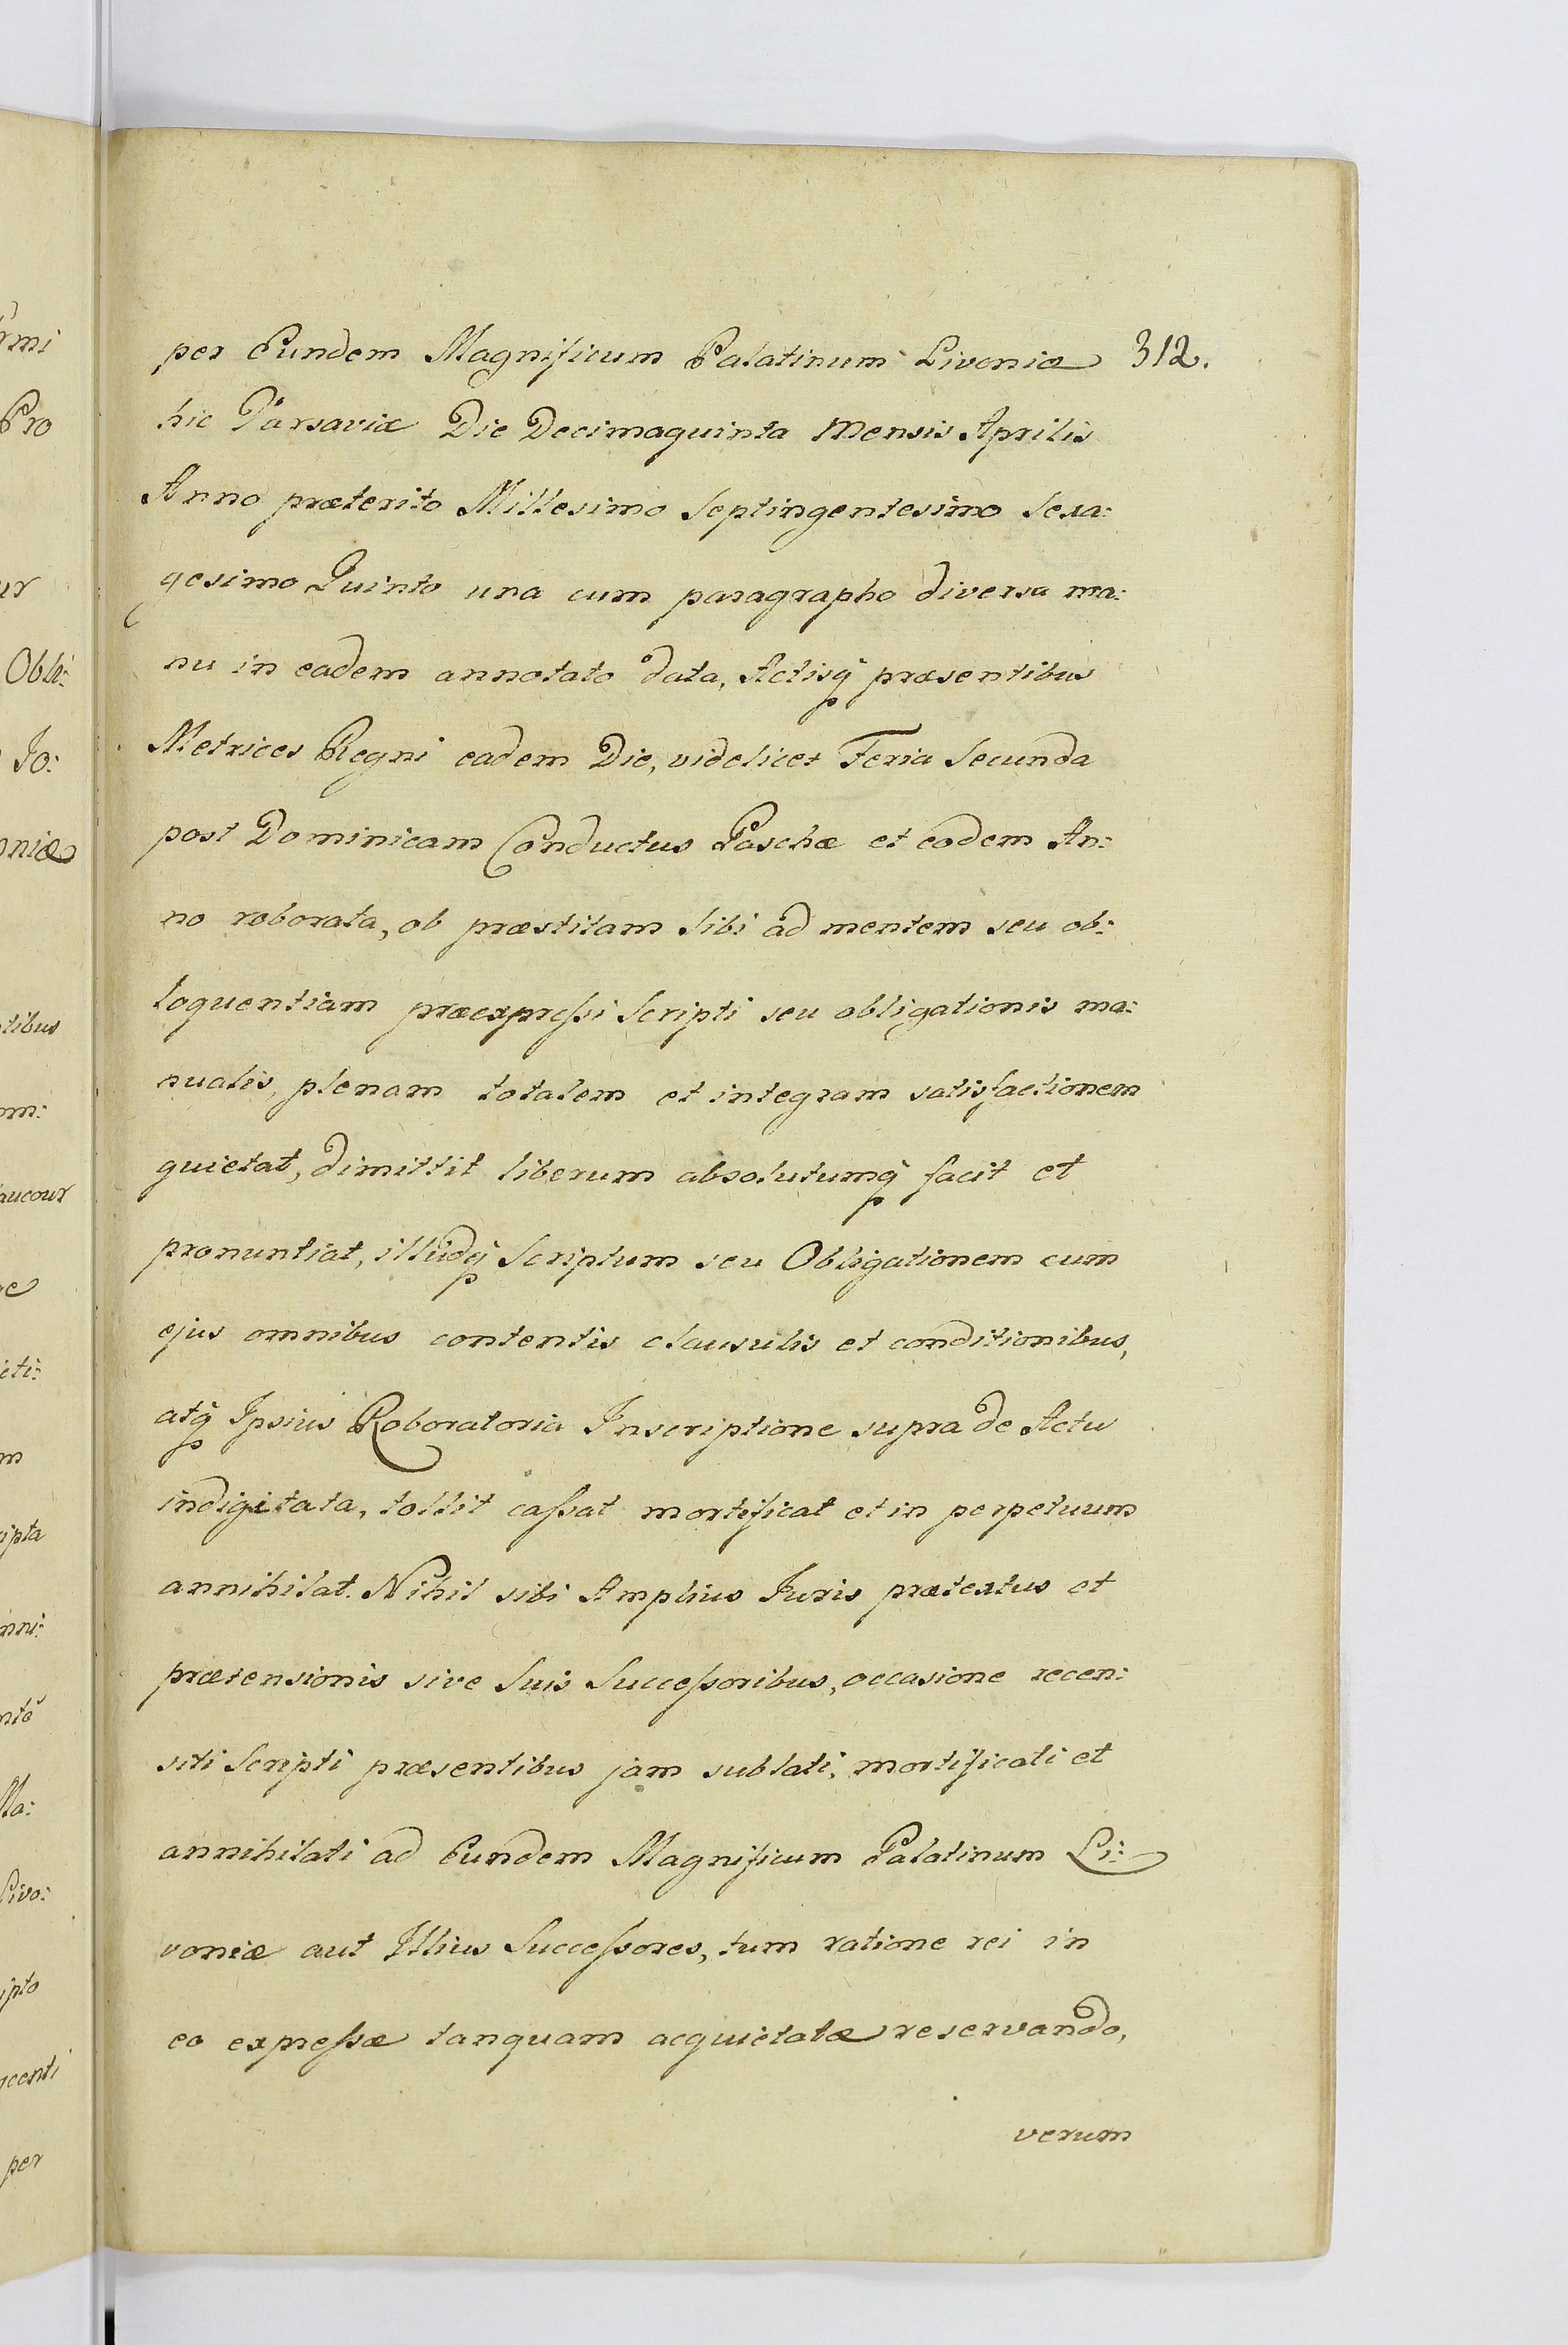 per Eundem Magnificum Palatinum Livoniæ 312.
hic Varsaviæ Die Decimaquinta Mensis Aprilis
Anno præterito Millesimo Septingentesimo Sexa:
gesimo Quinto una cum paragrapho diversa ma:
nu in eadem annotato data, Actisq́ præsentibus
Metrices Regni eadem Die, videlicet Feria Secunda
post Dominicam Conductus Paschæ et eodem An:
no roborata, ob præstitam Sibi ad mentem seu ob:
loquentiam præexpreſsi Scripti seu obligationis ma:
nualis, plenam totalem et integram satisfactionem
quietat, dimittit liberum absolutumq́ facit et
pronuntiat, illudq́ Scriptum seu Obligationem cum
ejus omnibus contentis clausulis et conditionibus,
atq́ Ipsius Roboratoria Inscriptione supra de Actu
indigitata, tollit caſsat mortificat et in perpetuum
annihilat. Nihil sibi Amplius Juris prætextus et
prætensionis sive Suis Succeſsoribus, occasione recen:
siti Scripti præsentibus jam sublati, mortificati et
annihilati ad Eundem Magnificum Palatinum Li:
voniæ aut Illius Succeſsores, tum ratione rei in
eo expreſsæ tanquam acquietatæ reservando,
verum
rmi
Pro
ur
Obli:
Jo:
oniæ
tibus
om:
aucour
e
ieti:
m
ipta
nni:
Ma:
Livo:
ipto
centi
per